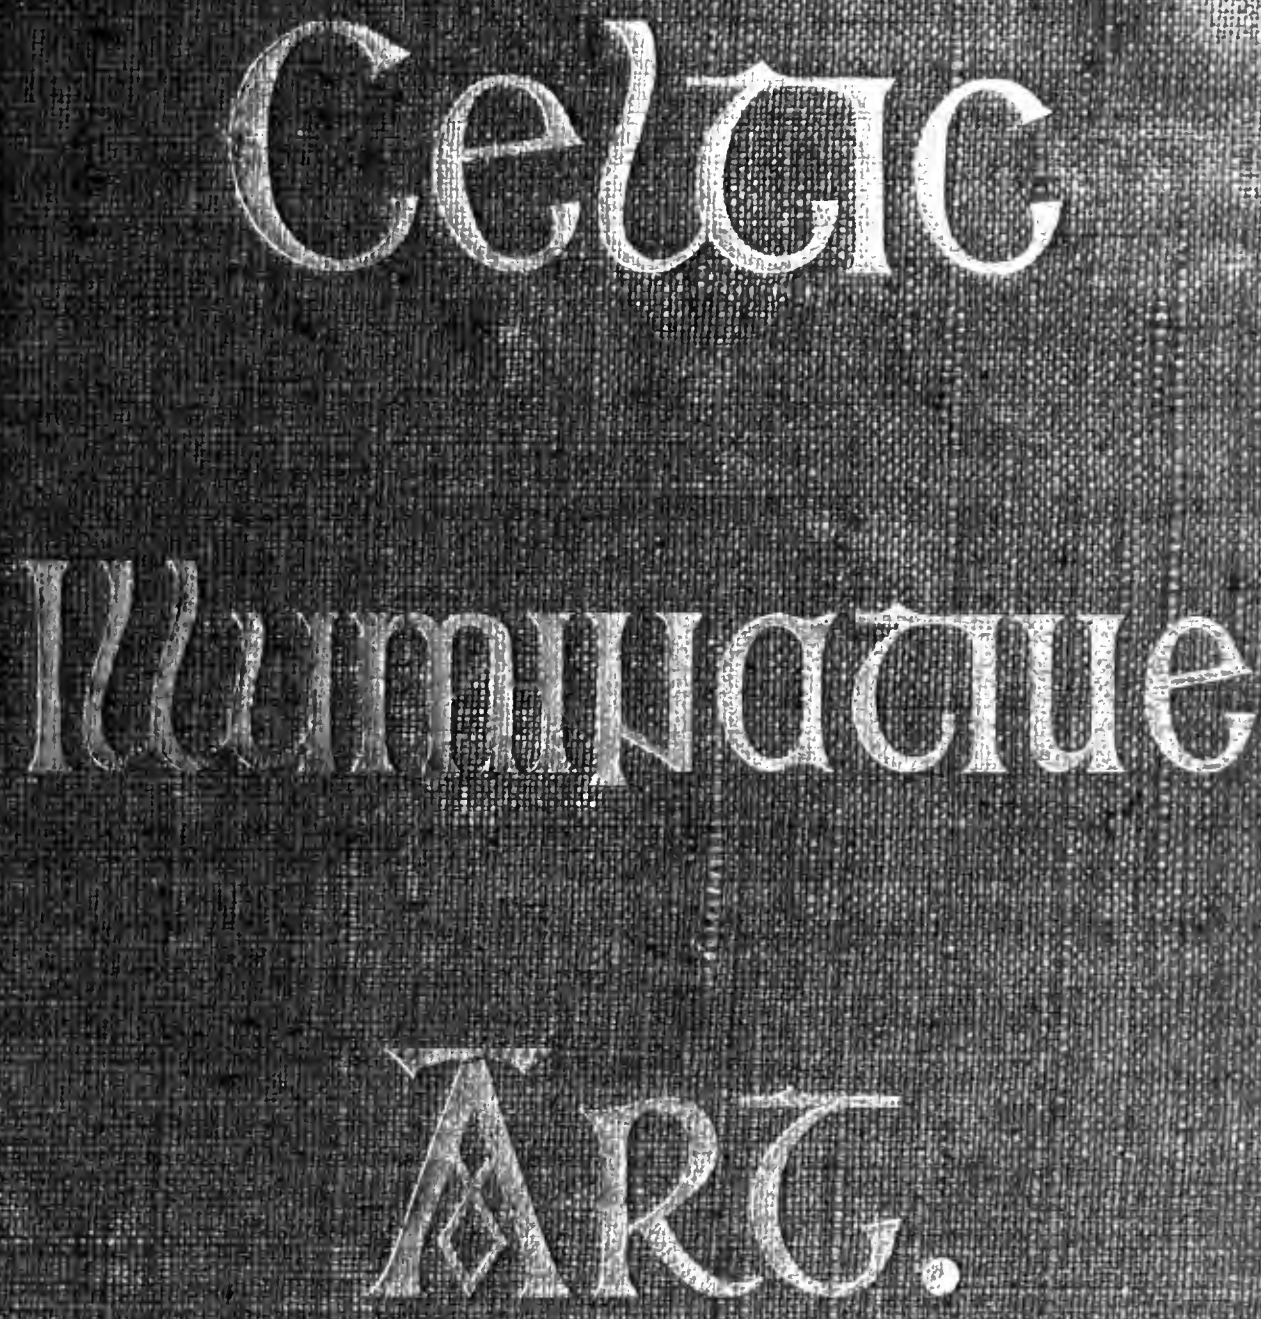 Celtic
Illuminative
Art.